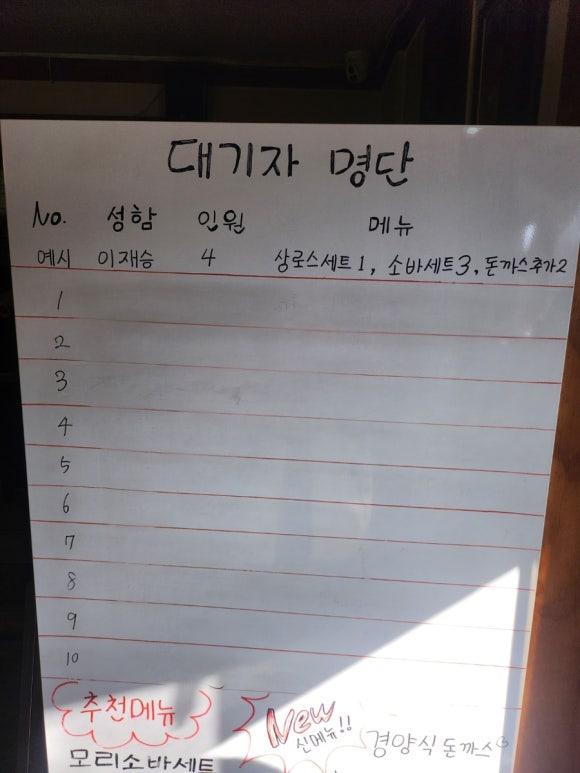 대기자 명단
No. 성함 인원 메뉴
예시 이재승 4 상로스세트1, 소바세트3, 돈까스추가2
1
2
3
4
5
6
7
8
9
10
추천메뉴
모리소바세트
New
신메뉴!!
경양식돈까스